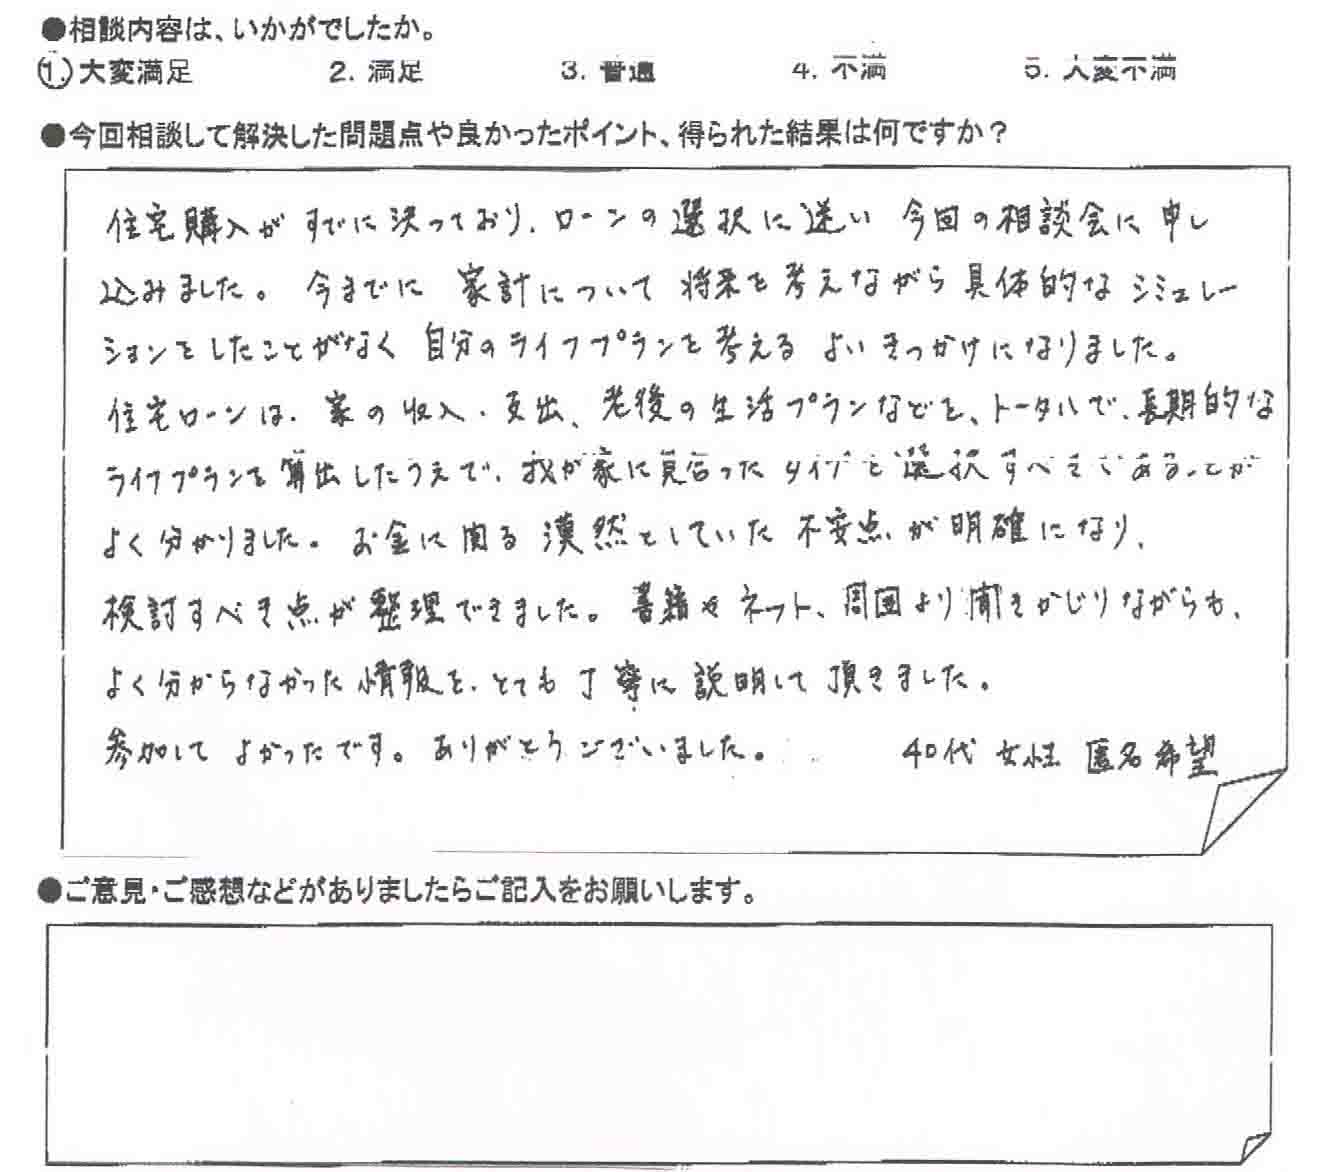 ●相談内容は、いかがでしたか。
1. 大変満足 2. 満足 3. 普通 4. 不満 5. 大変不満
●今回相談して解決した問題点や良かったポイント、得られた結果は何ですか？
住宅購入がすでに決っており、ローンの選択に迷い 今回の相談会に申し
込みました。 今までに 家計について 将来を考えながら具体的なシミュレー
ションをしたことがなく 自分のライフプランを考える よいきっかけになりました。
住宅ローンは、家の収入・支出、老後の生活プランなどを、トータルで、長期的な
ライフプランを算出したうえで、我が家に見合ったタイプを選択すべきであることが
よく分かりました。 お金に関る漠然としていた不安点が明確になり、
検討すべき点が整理できました。 書籍やネット、周囲より聞きかじりながらも、
よく分からなかった情報を、とても丁寧に説明して頂きました。
参加してよかったです。ありがとうございました。 40代 女性 匿名希望
●ご意見・ご感想などがありましたらご記入をお願いします。